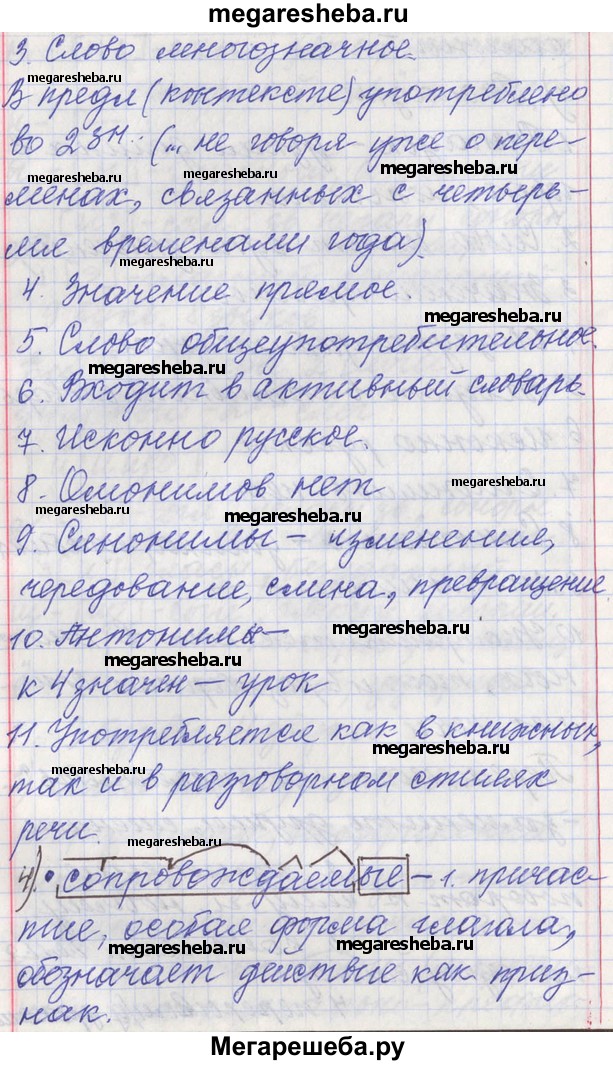 megaresheba.ru
3. Слово многозначное.
megaresheba.ru megaresheba.ru
В предл (контексте) употреблено
megaresheba.ru
во 2 зн. (... не говоря уже о пере-
megaresheba.ru megaresheba.ru
менах, связанных с четырь-
мя временами года).
megaresheba.ru
4. Значение прямое.
megaresheba.ru
5. Слово общеупотребительное.
megaresheba.ru
6. Входит в активный словарь.
7. Исконно русское.
8. Омонимов нет
megaresheba.ru
megaresheba.ru
9. Синонимы – изменения,
чередование, смена, превращение
10. Антонимы –
megaresheba.ru
megaresheba.ru
к 4 значен – урок
11. Употребляется как в книжных,
megaresheba.ru
megaresheba.ru
так и в разговорном стилях
речи.
megaresheba.ru
4). • сопровождаемые – 1. причас-
тие, особая форма глагола,
megaresheba.ru megaresheba.ru
обозначает действие как приз-
нак.
megaresheba.ru
Мегарешеба.ру